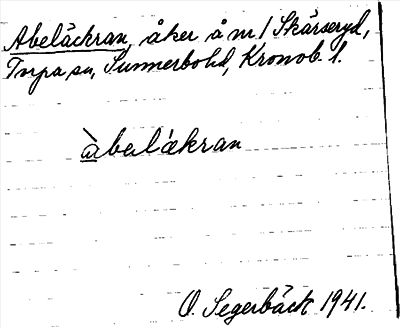 Abeläckran, åker å m/ Skärseryd,
Torpa sn, Sunnerbo hd, Kronob. l.
àbelækran
O. Segerbäck 1941.